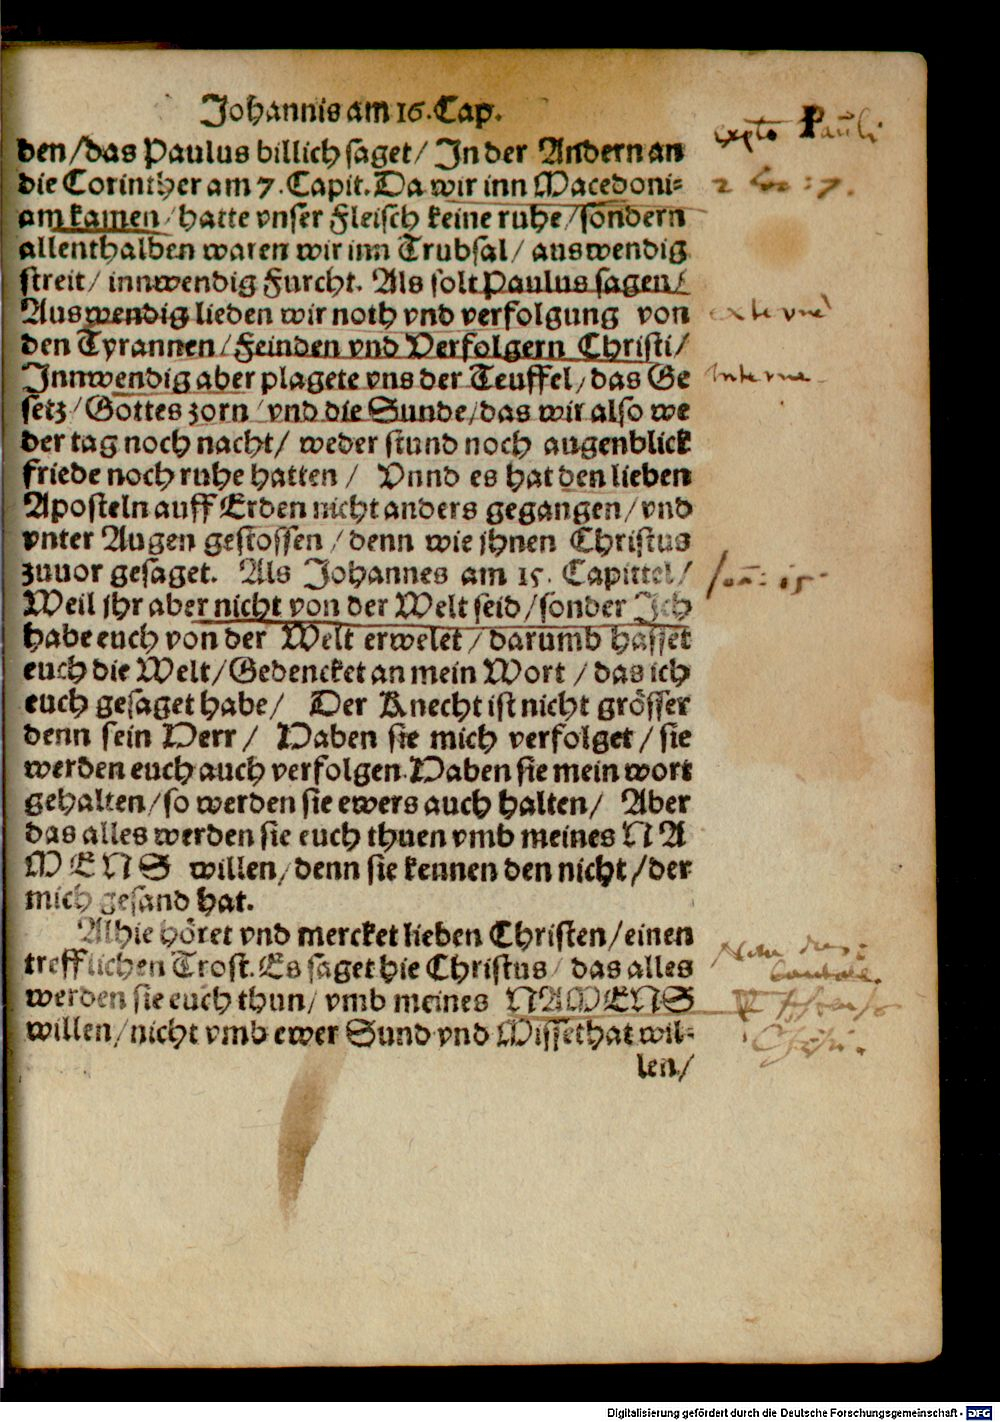 Johannis am 16. Cap.
den/das Paulus billich saget/ In der Andern an
die Corinther am 7. Capit. Da wir inn Macedoni⸗
am kamen/hatte vnser Fleisch keine ruhe/sondern
allenthalben waren wir inn Trubsal/ auswendig
streit/ innwendig Furcht. Als solt Paulus sagen/
Auswendig lieden wir noth vnd verfolgung von
den Tyrannen/Feinden vnd Verfolgern Christi/
Innwendig aber plagete vns der Teuffel/das Ge
setz/Gottes zorn/vnd die Sunde/das wir also we
der tag noch nacht/ weder stund noch augenblick
friede noch ruhe hatten/ Vnnd es hat den lieben
Aposteln auff Erden nicht anders gegangen/vnd
vnter Augen gestossen/denn wie jhnen Christus
zuuor gesaget. Als Johannes am 15. Capittel/
Weil jhr aber nicht von der Welt seid/sonder Ich
habe euch von der Welt erwelet/darumb hasset
euch die Welt/Gedencket an mein Wort/das ich
euch gesaget habe/ Der Knecht ist nicht grösser
denn sein Herr/ Haben sie mich verfolget/sie
werden euch auch verfolgen. Haben sie mein wort
gehalten/so werden sie ewers auch halten/ Aber
das alles werden sie euch thuen vmb meines NA
MENS willen/denn sie kennen den nicht/der
mich gesand hat.
Alhie höret vnd mercket lieben Christen/einen
trefflichen Trost. Es saget hie Christus/das alles
werden sie euch thun/vmb meines NAMENS
willen/nicht vmb ewer Sund vnd Missethat wil⸗
len/
Pauli
2 Cor: 7.
externe
Interne
Joan: 15
Christi.
Digitalisierung gefördert durch die Deutsche Forschungsgemeinschaft - DFG